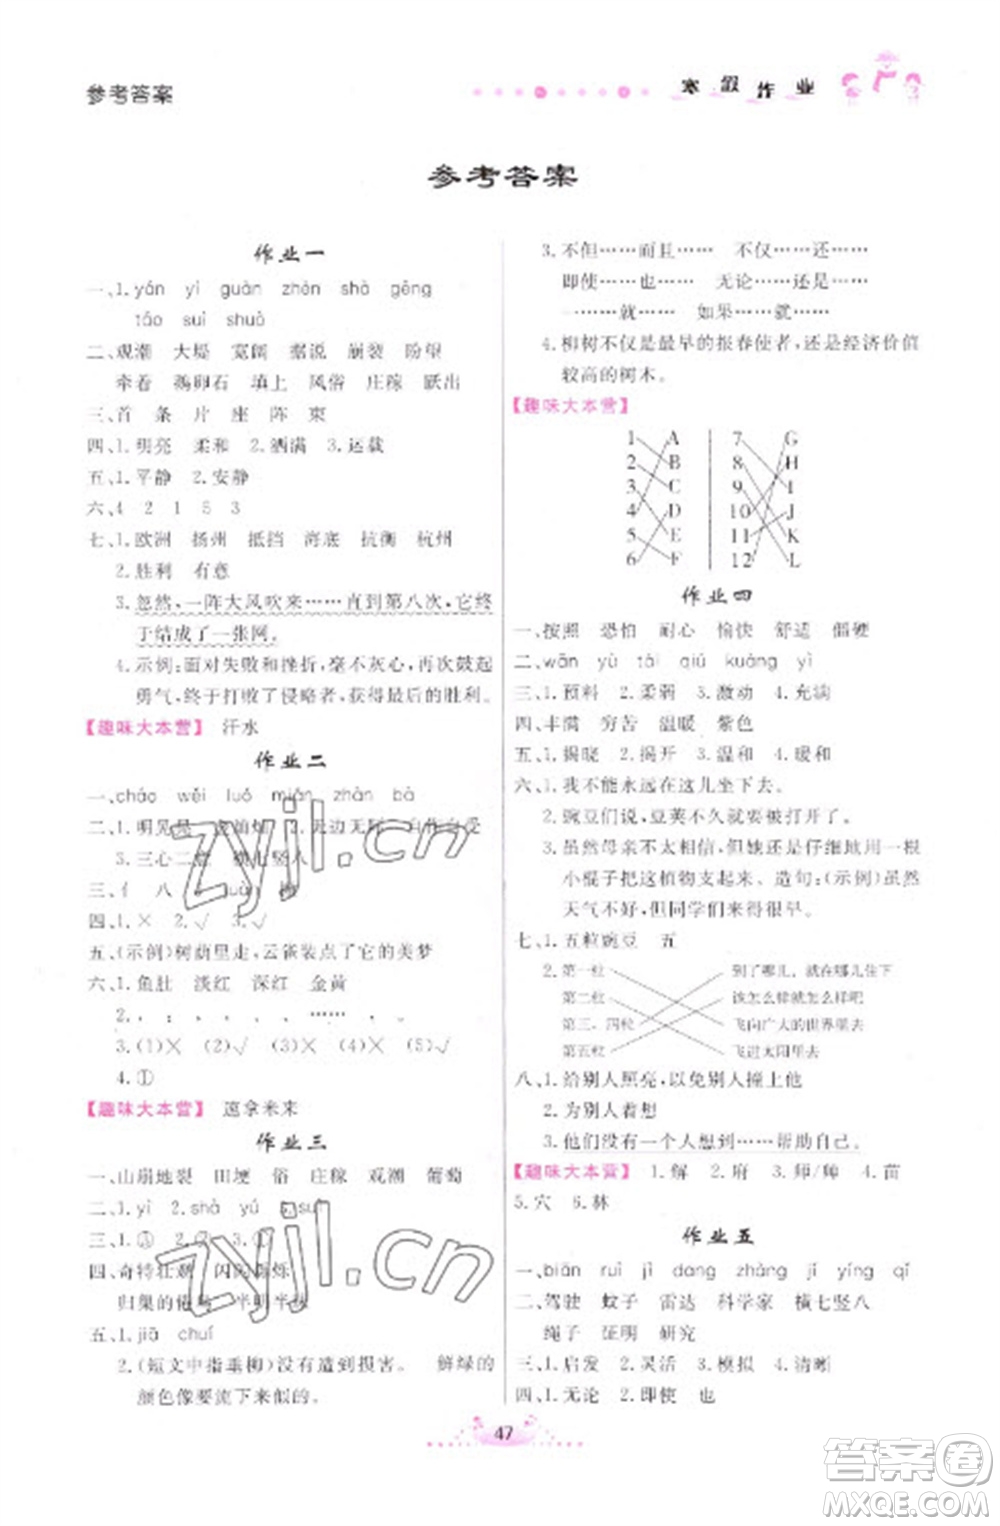 参考答案
寒假作业
参考答案
作业一
一、1.yán yì guàn zhèn shà gēng
tāo suì shuò
二、观潮 大堤 宽阔 据说 崩裂 盼望
牵着 鹅卵石 填上 风俗 庄稼 跃出
三、首 条 片 座 阵 束
四、1.明亮 柔和 2.洒满 3.运载
五、1.平静 2.安静
六、4 2 1 5 3
七、1.欧洲 扬州 抵挡 海底 抗衡 杭州
2.胜利 有意
3.忽然,一阵大风吹来……直到第八次,它终
于结成了一张网。
4.示例:面对失败和挫折,毫不灰心,再次鼓起
勇气,终于打败了侵略者,获得最后的胜利。
【趣味大本营】 汗水
作业二
一、cháo wěi luó mián zhàn bà
二、1.明晃晃
3.三心二意 横七竖八
三、亻 八
四、1.× 2.√ 3.√
五、(示例)树荫里走,云雀装点了它的美梦
六、1.鱼肚 淡红 深红 金黄
2. , : , , , …… , 。
3.(1)× (2)√ (3)× (4)× (5)√
4.①
【趣味大本营】 速拿米来
作业三
一、山崩地裂 田埂 俗 庄稼 观潮 葡萄
二、1.yì 2.shà yú
三、1.③ 2.
四、奇特壮观 闪闪烁烁
归巢的
五、1.jiā chuí
2.(短文中指垂柳)没有遭到损害。 鲜绿的
颜色像要流下来似的。
3.不但……而且…… 不仅……还……
即使……也…… 无论……还……
一……就…… 如果……就……
4.柳树不仅是最早的报春使者,还是经济价值
较高的树木。
【趣味大本营】
1 A 7 G
2 B 8 H
3 C 9 I
4 D 10 J
5 E 11 K
6 F 12 L
作业四
一、按照 恐怕 耐心 愉快 舒适 僵硬
二、wān yù tái qiú kuàng yì
三、1.预料 2.柔弱 3.激动 4.充满
四、丰满 穷苦 温暖 紫色
五、1.揭晓 2.揭开 3.温和 4.暖和
六、1.我不能永远在这儿坐下去。
2.豌豆们说,豆荚不久就要裂开了。
3.虽然母亲不太相信,但她还是仔细地用一根
小棍子把这植物支起来、造句:(示例)虽然
天气不好,但同学们来得很早。
七、1.五粒豌豆 五
2.第一粒 到了哪儿,就在哪儿住下
第二粒 该怎么样就怎么样吧
第三、四粒 飞向广大的世界里去
第五粒 飞进太阳里去
八、1.给别人照亮,以免别人撞上他
2.为别人着想
3.他们没有一个人想到……帮助自己。
【趣味大本营】 1.解 2.府 3.师/帅 4.苗
5.穴 6.林
作业五
一、biān ruì jì dang zhàng jī yíng qǐ
二、驾驶 蚊子 雷达 科学家 横七竖八
绳子 证明 研究
三、1.启发 2.灵活 3.模拟 4.清晰
四、1.无论 2.即使 也
47
答案圈
MXQE.COM
zyjl.cn
zyjl.cn